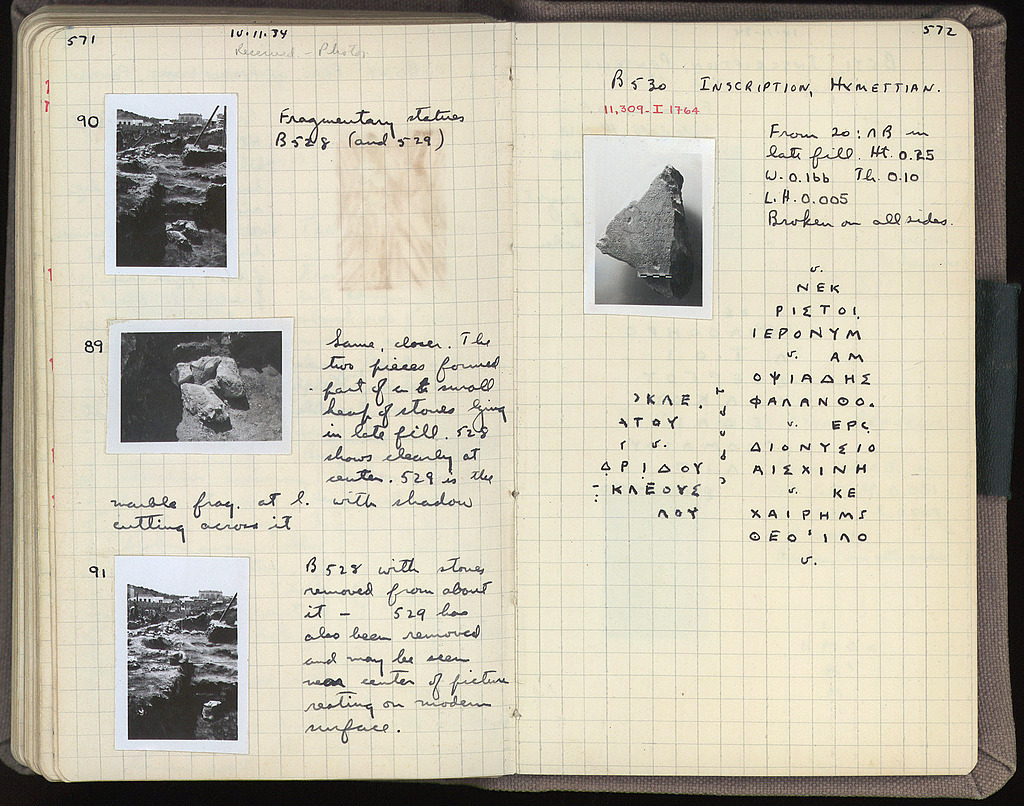 571
10.11.34
Received - Photos
90
Fragmentary statues
B 528 (and 529)
89
Same, closer. The
two pieces formed
part of a small
heap of stones lying
in late fill. 528
shows clearly at
center. 529 is the
marble frag. at l. with shadow
cutting across it
91
B 528 with stones
removed from about
it — 529 has
also been removed
and may be seen
near center of picture
resting on modern
surface.
572
B 530 INSCRIPTION, HYMETTIAN.
11,309 - I 1764
From 20 : ΛB in
late fill. Ht. 0.25
W. 0.166 Th. 0.10
L.H. 0.005
Broken on all sides.
v.
ΝΕΚ
ΡΙΣΤΟΙ
ΙΕΡΟΝΥΜ
v. ΑΜ
ΟΨΙΑΔΗΣ
ΚΛΕ. ΦΑΛΑΝΘΟ.
ΑΤΟΥ v. ΕΡΣ
v. ΔΙΟΝΥΣΙΟ
ΔΡΙΔΟΥ ΑΙΣΧΙΝΗ
ΚΛΕΟΥΣ v. ΚΕ
ΛΟΥ ΧΑΙΡΗΜΣ
ΘΕΟ'ΙΛΟ
v.